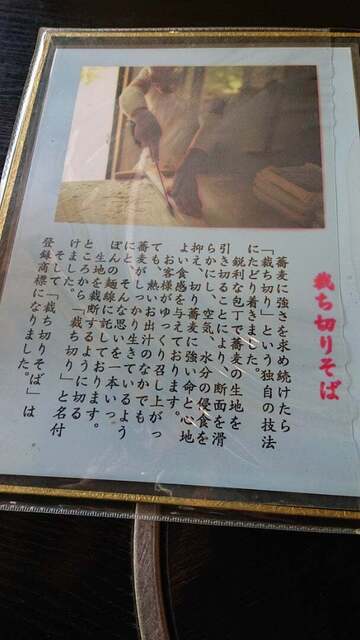 裁ち切りそば
蕎麦に強さを求め続けたら
「裁ち切り」という独自の技法
にたどり着きました。
鋭利な包丁で蕎麦の生地を
引き切ることにより、断面を滑
らかにし、空気、水分の侵食を
抑え、切り蕎麦に強い命と心地
よい食感を与えております。
お客様がゆっくり召し上がっ
ても、熱いお出汁のなかでも
蕎麦がしっかり生きているよう
にと、そんな思いを一本いっ
ぽんの麺線に託しております。
生地を裁断するように切る
ところから「裁ち切り」と名付
けました。
そして「裁ち切りそば」は
登録商標になりました。